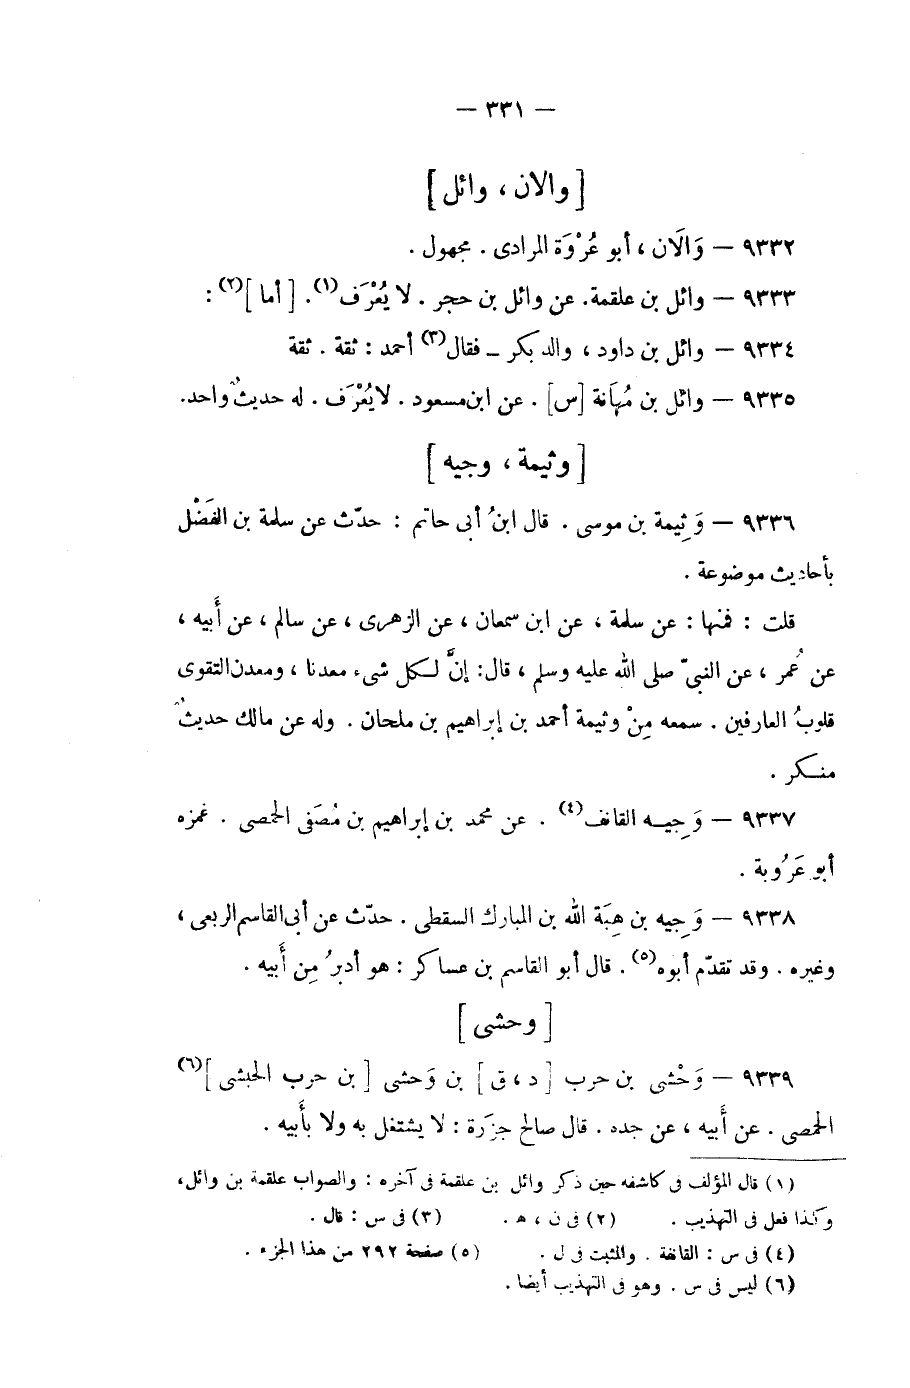 — ٣٣١ —
[ والان ، وائل ]
٩٣٣٢ — وَالَان ، أبو عُرْوَة المرادى . مجهول .
٩٣٣٣ — وائل بن علقمة. عن وائل بن حجر . لا يُعْرَف(١). [ أما ](٢) :
٩٣٣٤ — وائل بن داود ، والد بكر – فقال(٣) أحمد : ثقة . ثقة
٩٣٣٥ — وائل بن مُهَانة [س] . عن ابن مسعود . لا يُعْرَف . له حديثٌ واحد.
[ وثيمة ، وجيه ]
٩٣٣٦ — وَثِيمة بن موسى . قال ابنُ أبى حاتم : حدّث عن سلمة بن الفَضْل
بأحاديث موضوعة .
قلت : فمنها : عن سلمة ، عن ابن سمعان ، عن الزهرى ، عن سالم ، عن أَبيه ،
عن عُمر ، عن النبىّ صلى الله عليه وسلم ، قال: إنَّ لكل شىء معدنا ، ومعدن التقوى
قلوبُ العارفين . سمعه مِنْ وثيمة أحمد بن إبراهيم بن ملحان . وله عن مالك حديثٌ
منكر .
٩٣٣٧ — وَجِيه القانف(٤) . عن محمد بن إبراهيم بن مُصَفى الحمصى . غمزه
أبو عَرُوبة .
٩٣٣٨ — وَجِيه بن هِبَة الله بن المبارك السقطى . حدّث عن أبى القاسم الربعى ،
وغيره . وقد تقدّم أبوه(٥). قال أبو القاسم بن عساكر : هو أدبرُ مِن أَبيه .
[ وحشى ]
٩٣٣٩ — وَحْشى بن حرب [ د ، ق ] بن وَحشى [ بن حرب الحبشى ](٦)
الحمصى . عن أَبيه ، عن جده . قال صالح جزَرة : لا يشتغل به ولا بأَبيه .
(١) قال المؤلف فى كاشفه حين ذكر وائل بن علقمة فى آخره : والصواب علقمة بن وائل،
وكذا فعل فى التهذيب . (٢) فى ن ، ه . (٣) فى س : قال .
(٤) فى س : القانفة . والمثبت فى ل . (٥) صفحة ٢٩٢ من هذا الجزء .
(٦) ليس فى س . وهو فى التهذيب أيضا .